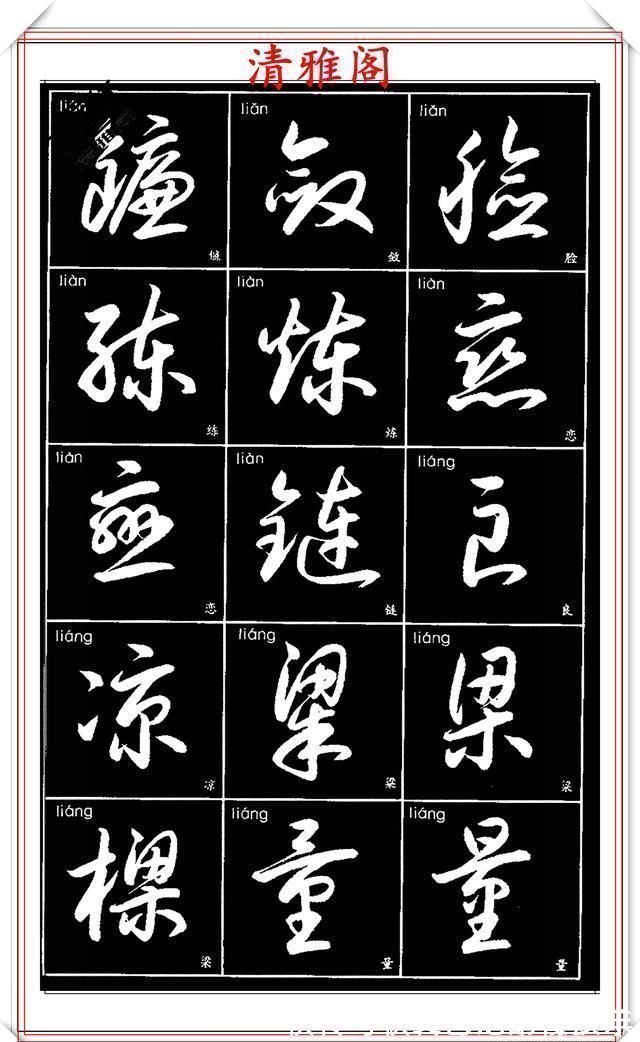 清雅阁
lián liǎn liǎn
敛 脸
liàn liàn liàn
练 炼 恋
liàn liàn liáng
恋 链 良
liáng liáng liáng
凉 梁 梁
liáng liáng liáng
梁 量 量